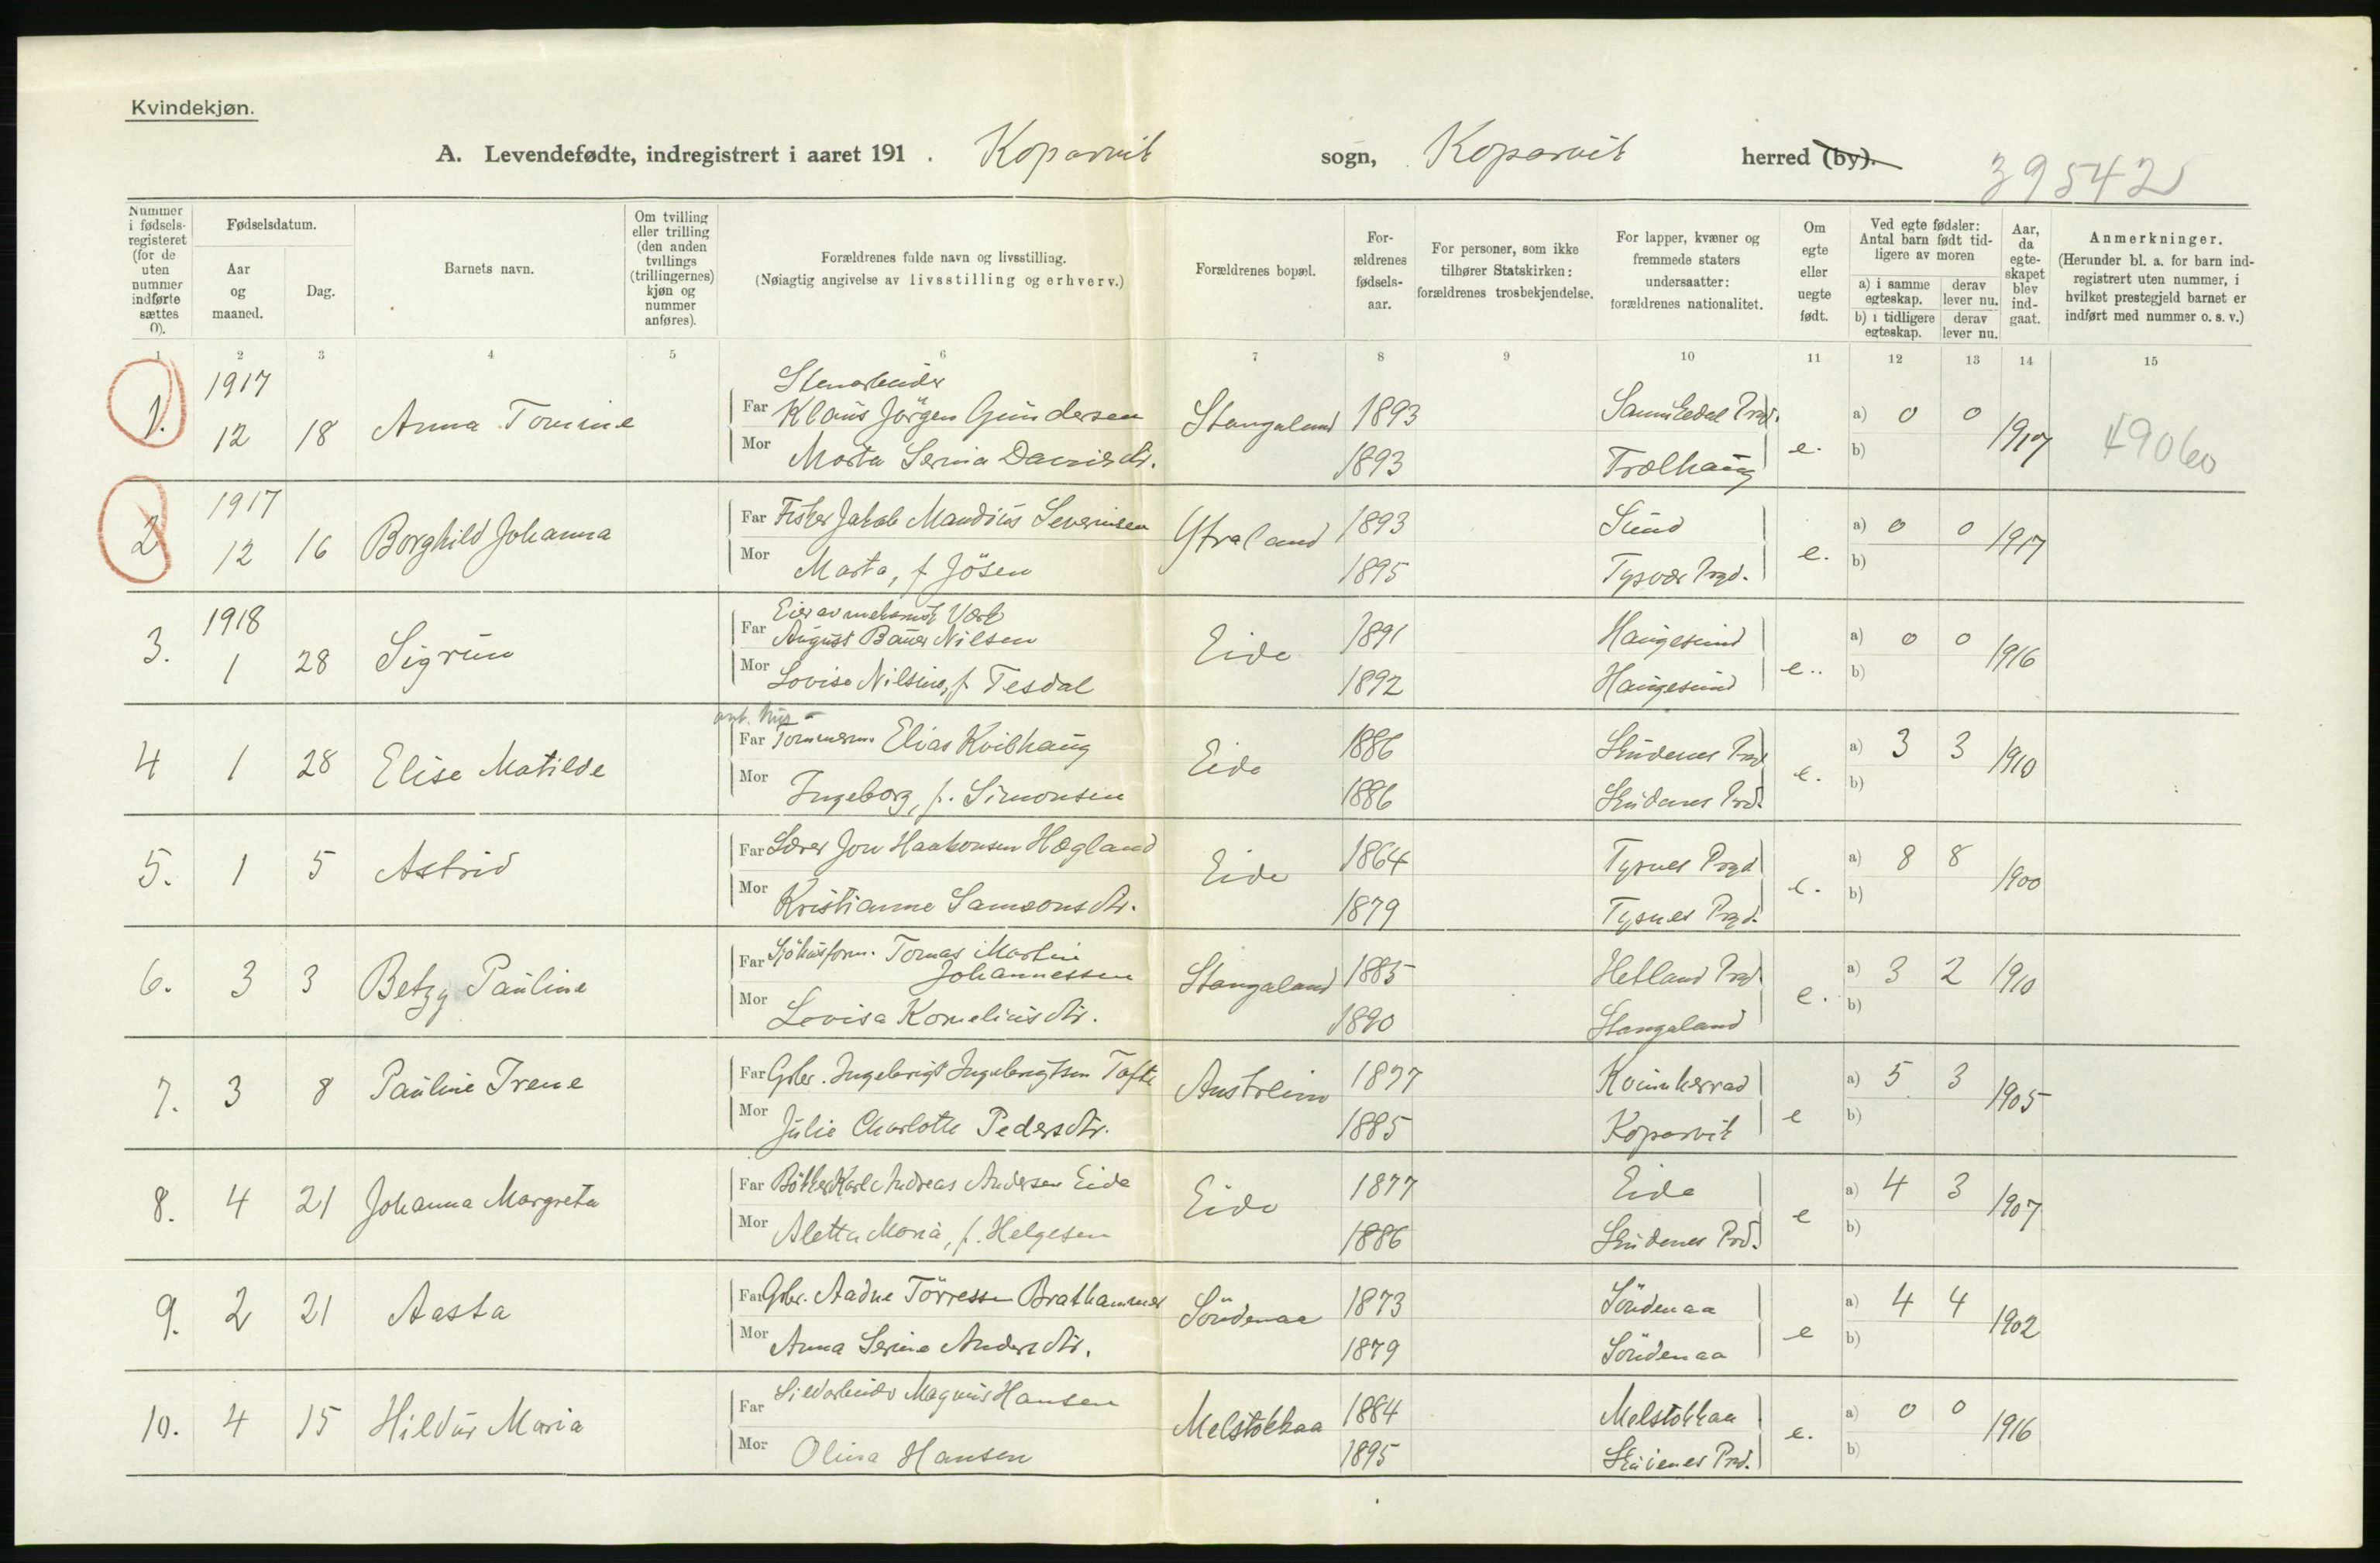 Kvindekjøn.
A. Levendefødte, indregistrert i aaret 191 . Kopervik sogn, Kopervik herred (by).
39542
Nummer i fødsels-registeret (for de uten nummer indførte sættes 0).
Fødselsdatum.
Aar og maaned.
Dag.
Barnets navn.
Om tvilling eller trilling (den anden tvillings (trillingernes) kjøn og nummer anføres).
Forældrenes fulde navn og livsstilling.
(Nøiagtig angivelse av livsstilling og erhverv.)
Forældrenes bopæl.
For-ældrenes fødsels-aar.
For personer, som ikke tilhører Statskirken: forældrenes trosbekjendelse.
For lapper, kvæner og fremmede staters undersaatter: forældrenes nationalitet.
Om egte eller uegte født.
Ved egte fødsler: Antal barn født tid-ligere av moren
a) i samme egteskap.
derav lever nu.
b) i tidligere egteskap.
derav lever nu.
Aar, da egte-skapet blev ind-gaat.
Anmerkninger.
(Herunder bl. a. for barn ind-registrert uten nummer, i hvilket prestegjeld barnet er indført med nummer o. s. v.)
1 2 3 4 5 6 7 8 9 10 11 12 13 14 15
1917 Stenarbeider
1. 12 18 Anna Tomine Far Klaus Jörgen Gundersen Stangaland 1893 a) 0 0 1917 49060
Mor Marta Serina Davidsdtr. 1893 Trælhaug e. b)
1917
2 12 16 Borghild Johanna Far Fisker Jakob Mandius Severinsen Ytraland 1893 Sund a) 0 0 1917
Mor Marta, f Jösen 1895 Tysvær Prgd. e. b)
1918 Eier av mekanisk Værk
3. 1 28 Sigrun Far August Bauer Nilsen Eide 1891 Haugesund a) 0 0 1916
Mor Lovise Nilsine, f Tesdal 1892 Haugesund e. b)
4 1 28 Elise Matilde Far Tømmerm. Elias Kvilhaug Eide 1886 Skudenes Prgd a) 3 3 1910
Mor Ingeborg, f. Simonsen 1886 Skudenes Prd. e. b)
5. 1 5 Astrid Far Lærer Jon Haakonsen Hægland Eide 1864 Tysnes Prgd a) 8 8 1900
Mor Kristianne Samsonsdtr. 1879 Tysnes Prgd. e. b)
6. 3 3 Betzy Pauline Far Sjöhusform. Tomas Martin
Johannessen Stangaland 1885 Hetland Prgd. a) 3 2 1910
Mor Lovisa Korneliusdtr. 1890 Stangaland e. b)
7. 3 8 Pauline Irene Far Gbr. Ingebrigt Ingebrigtsen Tofte Austreim 1877 Kvinnherrad a) 5 3 1905
Mor Julie Charlotte Pedersdtr. 1885 Kopervik e b)
8. 4 21 Johanna Margreta Far Bötker Karl Andreas Andersen Eide Eide 1877 Eide a) 4 3 1907
Mor Aletta Maria, f. Helgesen 1886 Skudenes Prd. e b)
9. 2 21 Aasta Far Gbr. Aadne Törressen Brathammer Söndenaa 1873 Söndenaa a) 4 4 1902
Mor Anna Serine Andersdtr. 1879 Söndenaa e b)
10. 4 15 Hildur Maria Far Sildarbeider Magnus Hansen Melstokkaa 1884 Melstokkaa a) 0 0 1916
Mor Olina Hansen 1895 Skudenes Prd. e. b)